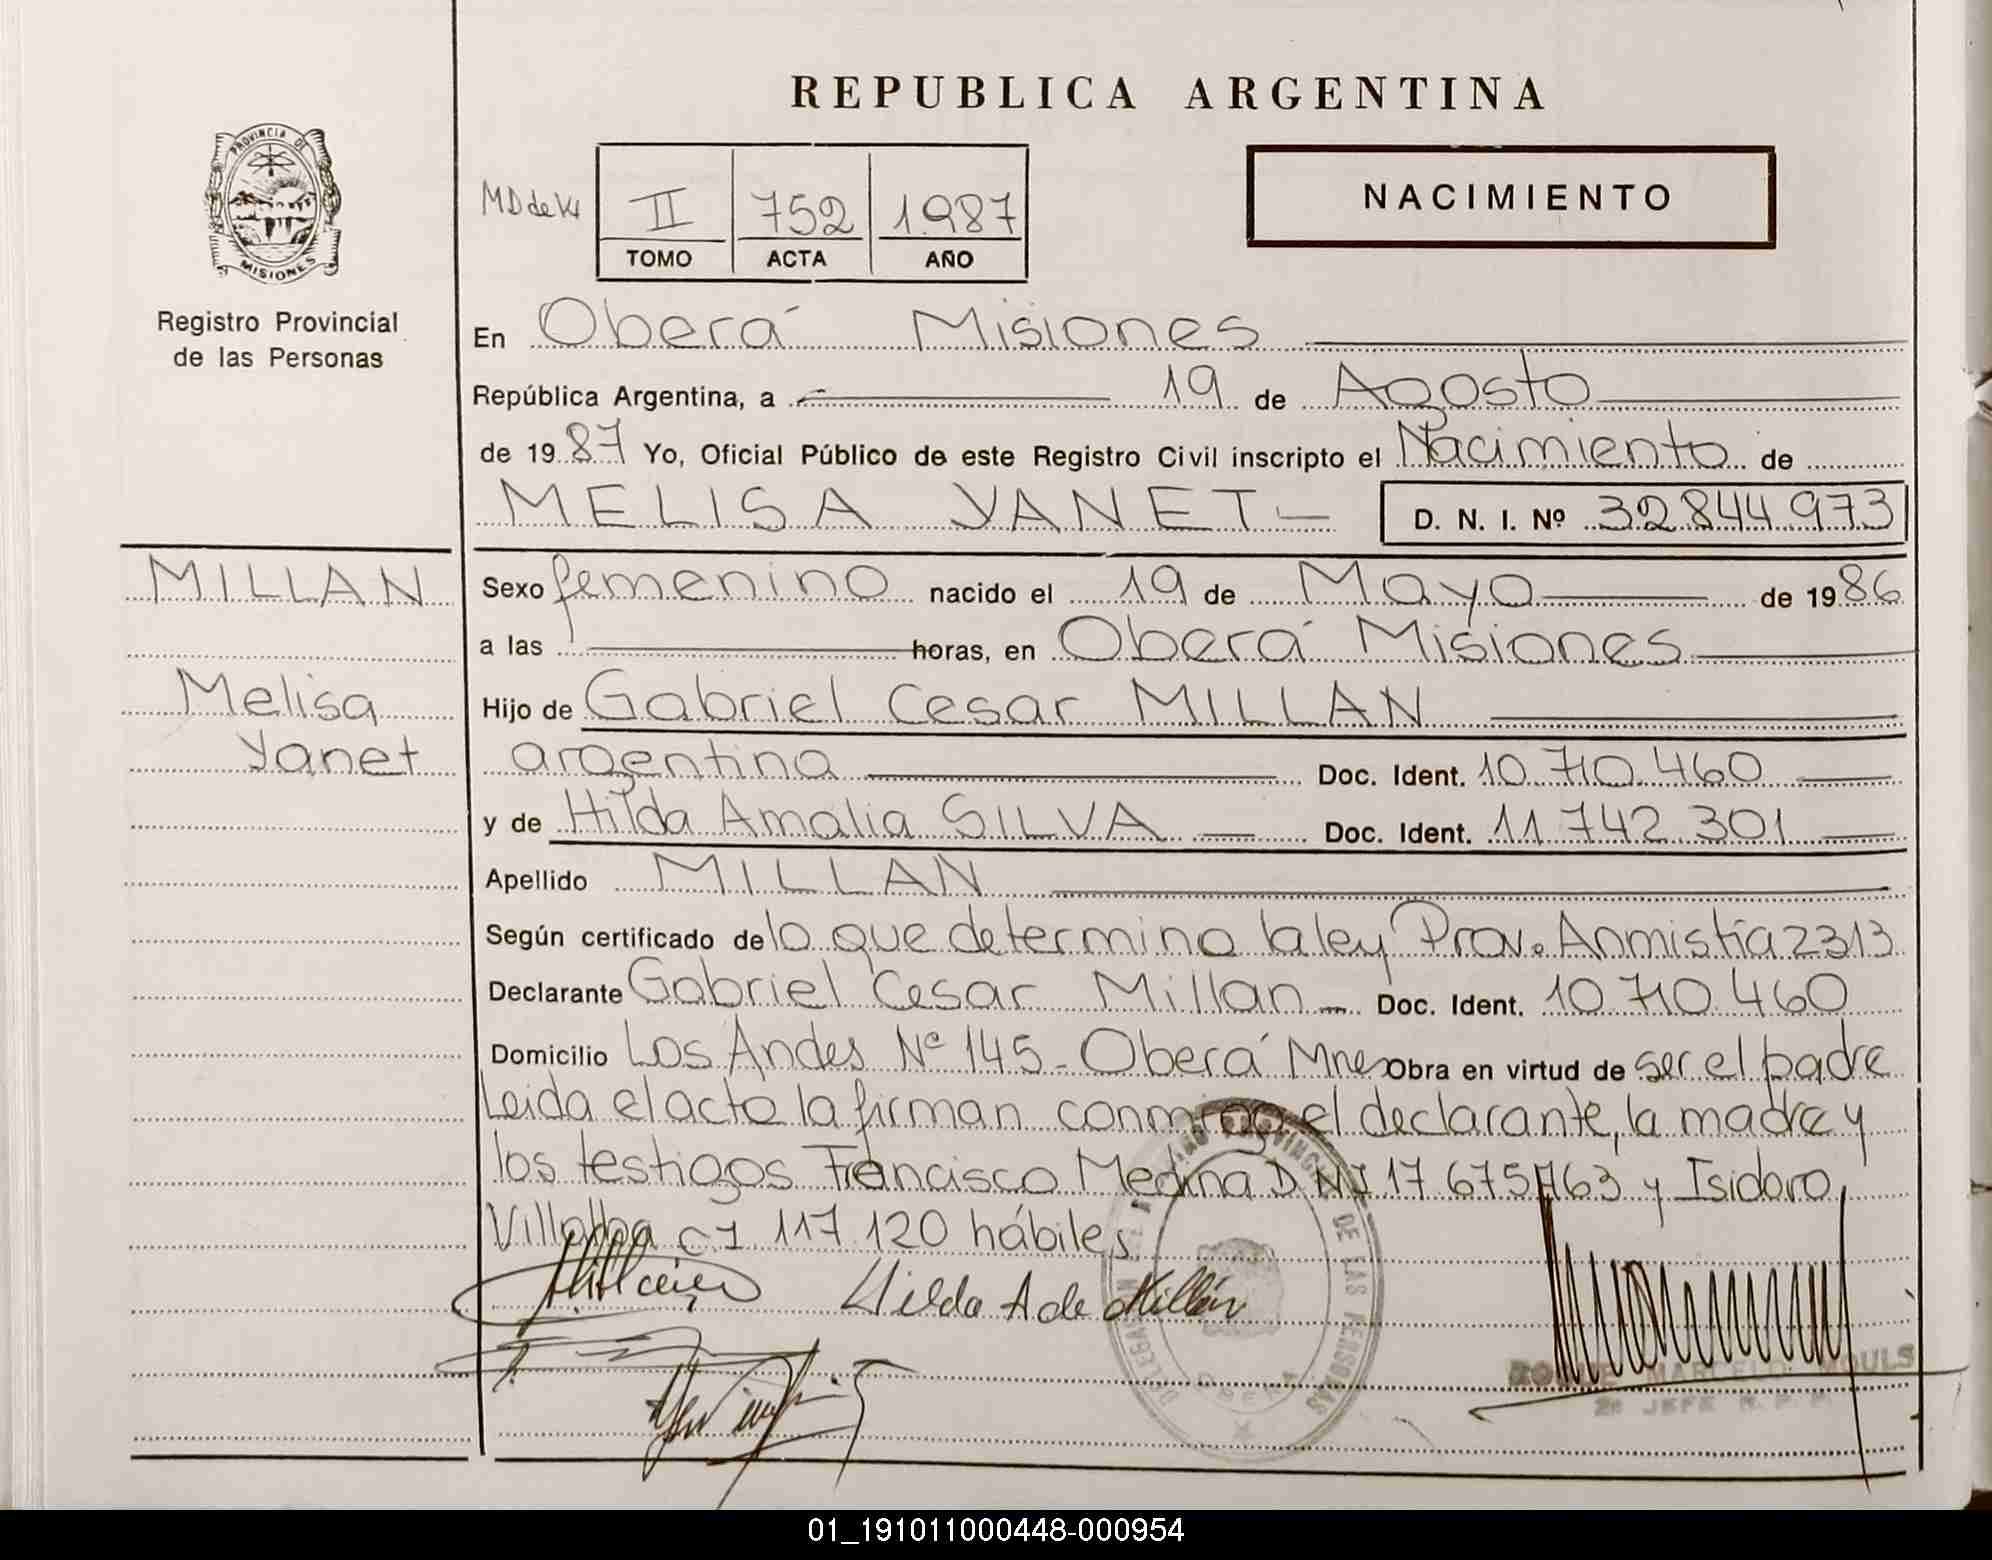 REPUBLICA ARGENTINA
PROVINCIA DE
MISIONES
Registro Provincial
de las Personas
MD de K
II 752 1987
TOMO ACTA AÑO
NACIMIENTO
En Oberá Misiones
República Argentina, a 19 de Agosto
de 1987 Yo, Oficial Público de este Registro Civil inscripto el Nacimiento de
MELISA YANET- D. N. I. Nº 32844973
MILLAN
Melisa
Yanet
Sexo femenino nacido el 19 de Mayo de 1986
a las horas, en Oberá Misiones
Hijo de Gabriel Cesar MILLAN
argentina Doc. Ident. 10.710.460
y de Hilda Amalia SILVA Doc. Ident. 11.742.301
Apellido MILLAN
Según certificado de lo que determina la ley Prov. Anmistía 2313
Declarante Gabriel Cesar Millan Doc. Ident. 10.710.460
Domicilio Los Andes Nº 145 - Oberá Mnes Obra en virtud de ser el padre
Leida el acta la firman conmigo el declarante, la madre y
los testigos Francisco Medina DNI 17 675 763 y Isidoro
Villalba CI 117.120 hábiles
Hilda A de Millán
DELEGACION DEL REGISTRO PROVINCIAL DE LAS PERSONAS
OBERA
MARCELO
2º JEFE R. P. P.
01_191011000448-000954